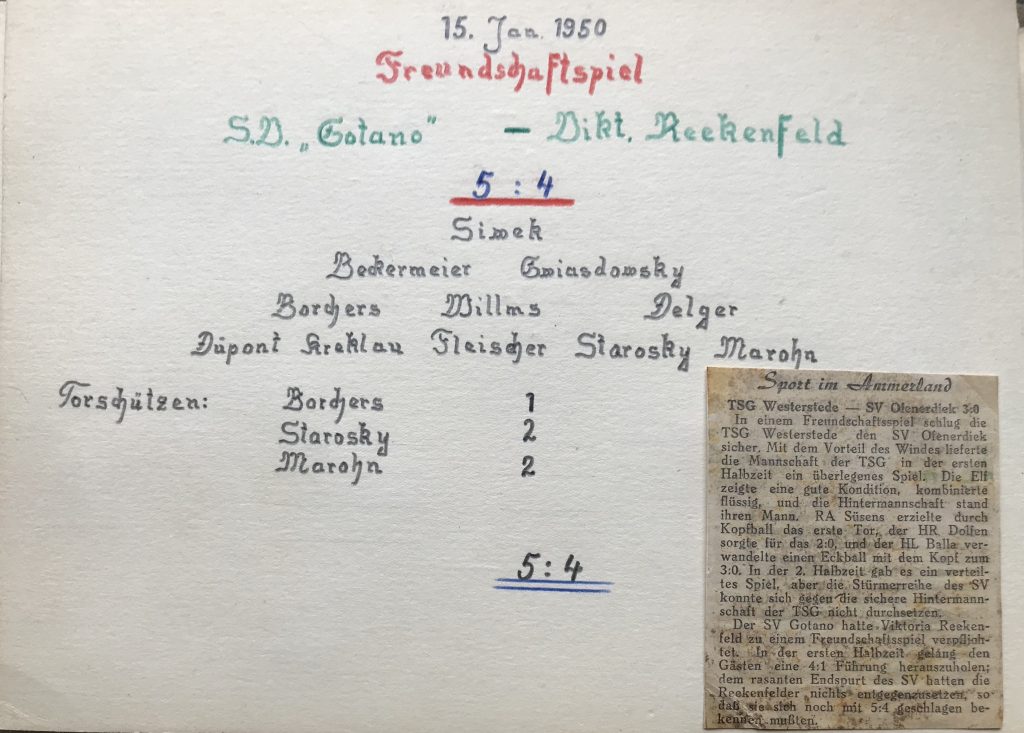 15. Jan. 1950
Freundschaftspiel
S.V. „Gotano" — Vikt. Reekenfeld
5 : 4
Simek
Beckermeier Gwiasdowsky
Borchers Willms Delger
Düpont Kreklau Fleischer Starosky Marohn
Torschützen: Borchers 1
Starosky 2
Marohn 2
5 : 4
Sport im Ammerland
TSG Westerstede — SV Ofenerdiek 3:0
In einem Freundschaftsspiel schlug die
TSG Westerstede den SV Ofenerdiek
sicher. Mit dem Vorteil des Windes lieferte
die Mannschaft der TSG in der ersten
Halbzeit ein überlegenes Spiel. Die Elf
zeigte eine gute Kondition, kombinierte
flüssig, und die Hintermannschaft stand
ihren Mann. RA Süsens erzielte durch
Kopfball das erste Tor, der HR Dolfen
sorgte für das 2:0, und der HL Balla ver-
wandelte einen Eckball mit dem Kopf zum
3:0. In der 2. Halbzeit gab es ein verteil-
tes Spiel, aber die Stürmerreihe des SV
konnte sich gegen die sichere Hintermann-
schaft der TSG nicht durchsetzen.
Der SV Gotano hatte Viktoria Reeken-
feld zu einem Freundschaftsspiel verpflich-
tet. In der ersten Halbzeit gelang den
Gästen eine 4:1 Führung herauszuholen;
dem rasanten Endspurt des SV hatten die
Reekenfelder nichts entgegenzusetzen, so
daß sie sich noch mit 5:4 geschlagen be-
kennen mußten.